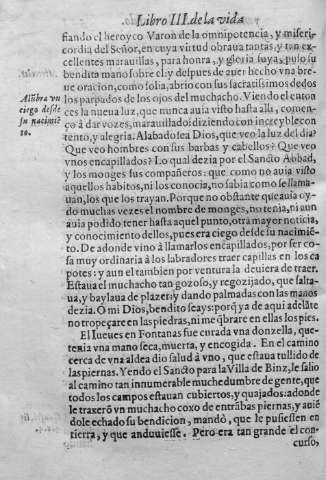 Libro III. de la vida
fiando el heroyco Varon de la omnipotencia, y miseri-
cordia del Señor, en cuya virtud obraua tantas, y tan ex-
cellentes marauillas, para honra, y gloria suya, puso su
bendita mano sobre el: y despues de auer hecho vna bre-
ue oracion, como solia, abrio con sus sacratissimos dedos
los parpados de los ojos del muchacho. Viendo el enton
Alũbra vn
ciego desde
su nacimiẽ
to.
ces la nueua luz, que nunca auia visto hasta alli, comen-
çò à dar vozes, marauillado: diziendo con increyble con
tento, y alegria. Alabado sea Dios, que veo la luz del dia?
Que veo hombres con sus barbas y cabellos? Que veo
vnos encapillados? Lo qual dezia por el Sancto Abbad,
y los monges sus compañeros: que como no auia visto
aquellos habitos, ni los conocia, no sabia como se llama-
uan, los que los trayan. Porque no obstante que auia oy-
do muchas vezes el nombre de monges, no tenia, ni aun
auia podido tener hasta aquel punto, otra mayor noticia,
y conocimiento dellos, pues era ciego desde su nacimiẽ-
to. De adonde vino à llamarlos encapillados, por ser co-
sa muy ordinaria à los labradores traer capillas en los ca
potes: y aun el tambien por ventura la deuiera de traer.
Estaua el muchacho tan gozoso, y regozijado, que salta-
ua, y baylaua de plazer: y dando palmadas con las manos
dezia. O mi Dios, bendito seays: porq̃ ya de aqui adelãte
no tropeçare en las piedras, ni me q̃brare en ellas los pies.
El Iueues en Fontanas fue curada vna donzella, que-
tenia vna mano seca, muerta, y encogida. En el camino
cerca de vna aldea dio salud à vno, que estaua tullido de
las piernas. Yendo el Sancto para la Villa de Binz, le salio
al camino tan innumerable muchedumbre de gente, que
todos los campos estauan cubiertos, y quajados: adonde
le traxerõ vn muchacho coxo de entrãbas piernas, y auiẽ
dole echado su bendicion, mandò, que le pusiessen en
tierra, y que anduuiesse. Pero era tan grande el con-
curso,